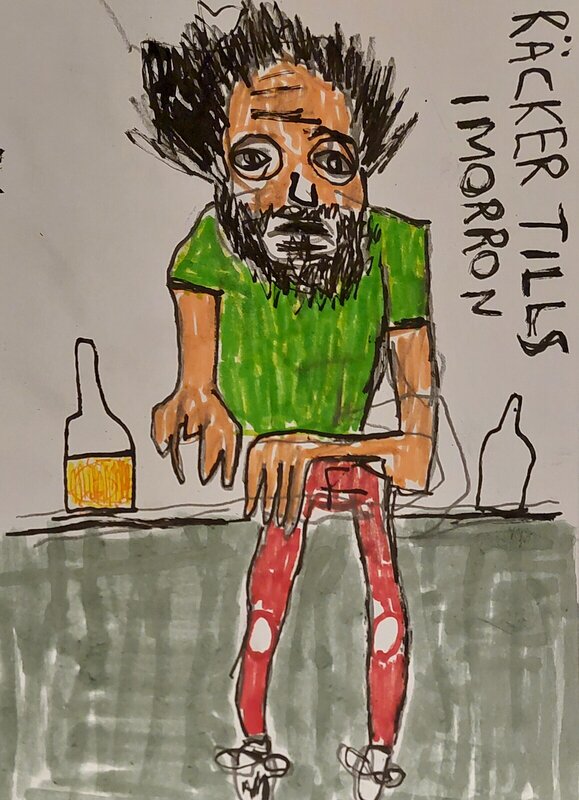 RÄCKER TILLS
IMORRON